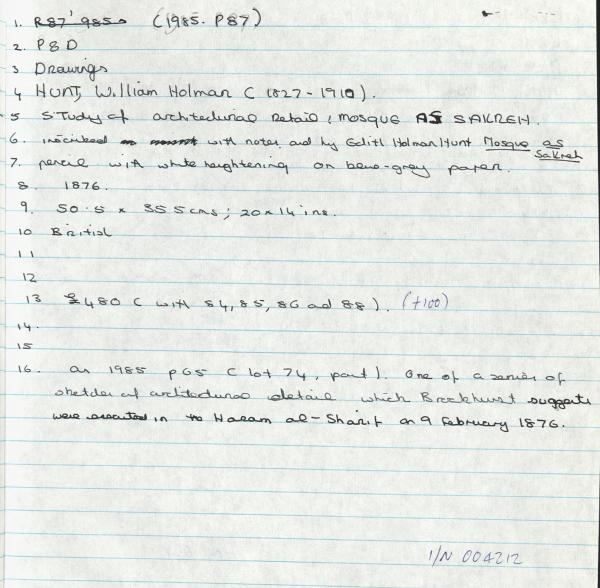 1. R87'985 (1985. P87)
2. P&D
3 Drawings
4 HUNT, William Holman C (1827-1910).
5 STudy of architectural Detail; MOSQUE AS SAKREH.
6. inscribed on mount with notes and by Edith Holman Hunt Mosque as Sakreh
7. pencil with white heightening on blue-grey paper.
8. 1876.
9. 50.5 x 35.5 cms; 20x14 ins.
10 British
11
12
13 £480 C with 84, 85, 86 and 88). (+100)
14.
15
16. as 1985 P65 C lot 74, part). One of a series of
sketches of architectural detail which Bronkhurst suggests
were executed in the Haram al-Sharif on 9 February 1876.
I/N 004212